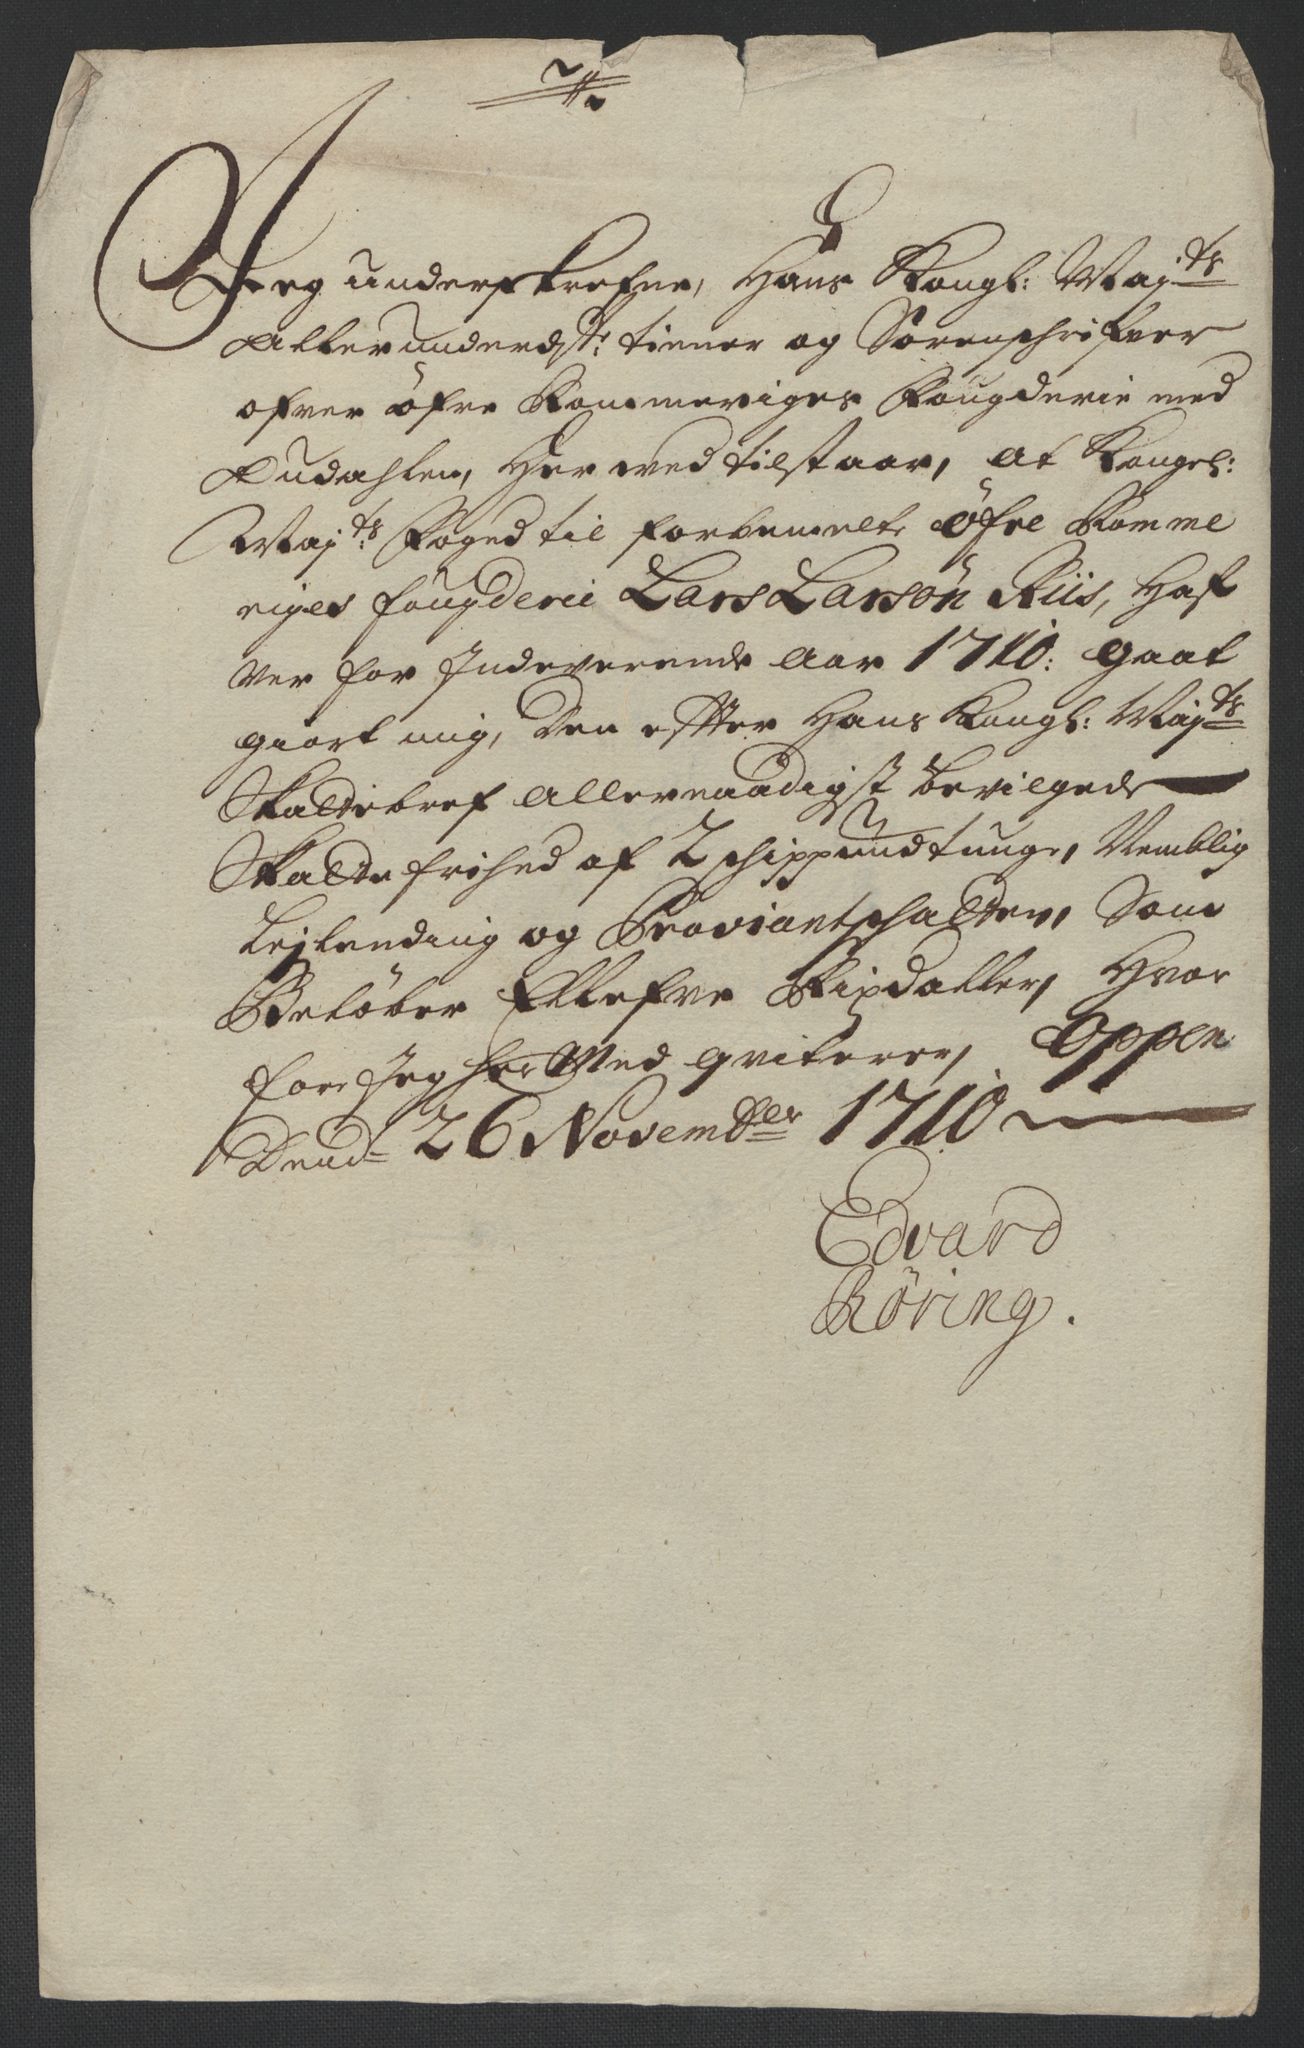 Jeg underskrefne, Hans Kongl: Maj:ts
Allerunderdst: tiener og Sorenschrifver
ofver öfre Rommeriges Fougderie med
Audahlen, Her ved tilstaar, at Kongel:
Maj:ts Foged til forbemelte Öfre Romme
riges fougderie Lars Larsön Riis, Haf
ver for Indeverende Aar 1710: gaat
giort mig, den efter Hans Kongl: Maj:ts
Skattebref allernaadigst bevilgede
Skatte frihed af 2 schippund tunge, Nemblig
Lejlending og Proviantschatten, Som
Belöber Ellefve Rixdaller, Hvor
fore Jeg her Med qviterer, Oppen
Dend 26 November 1710
Edvard
Röring.